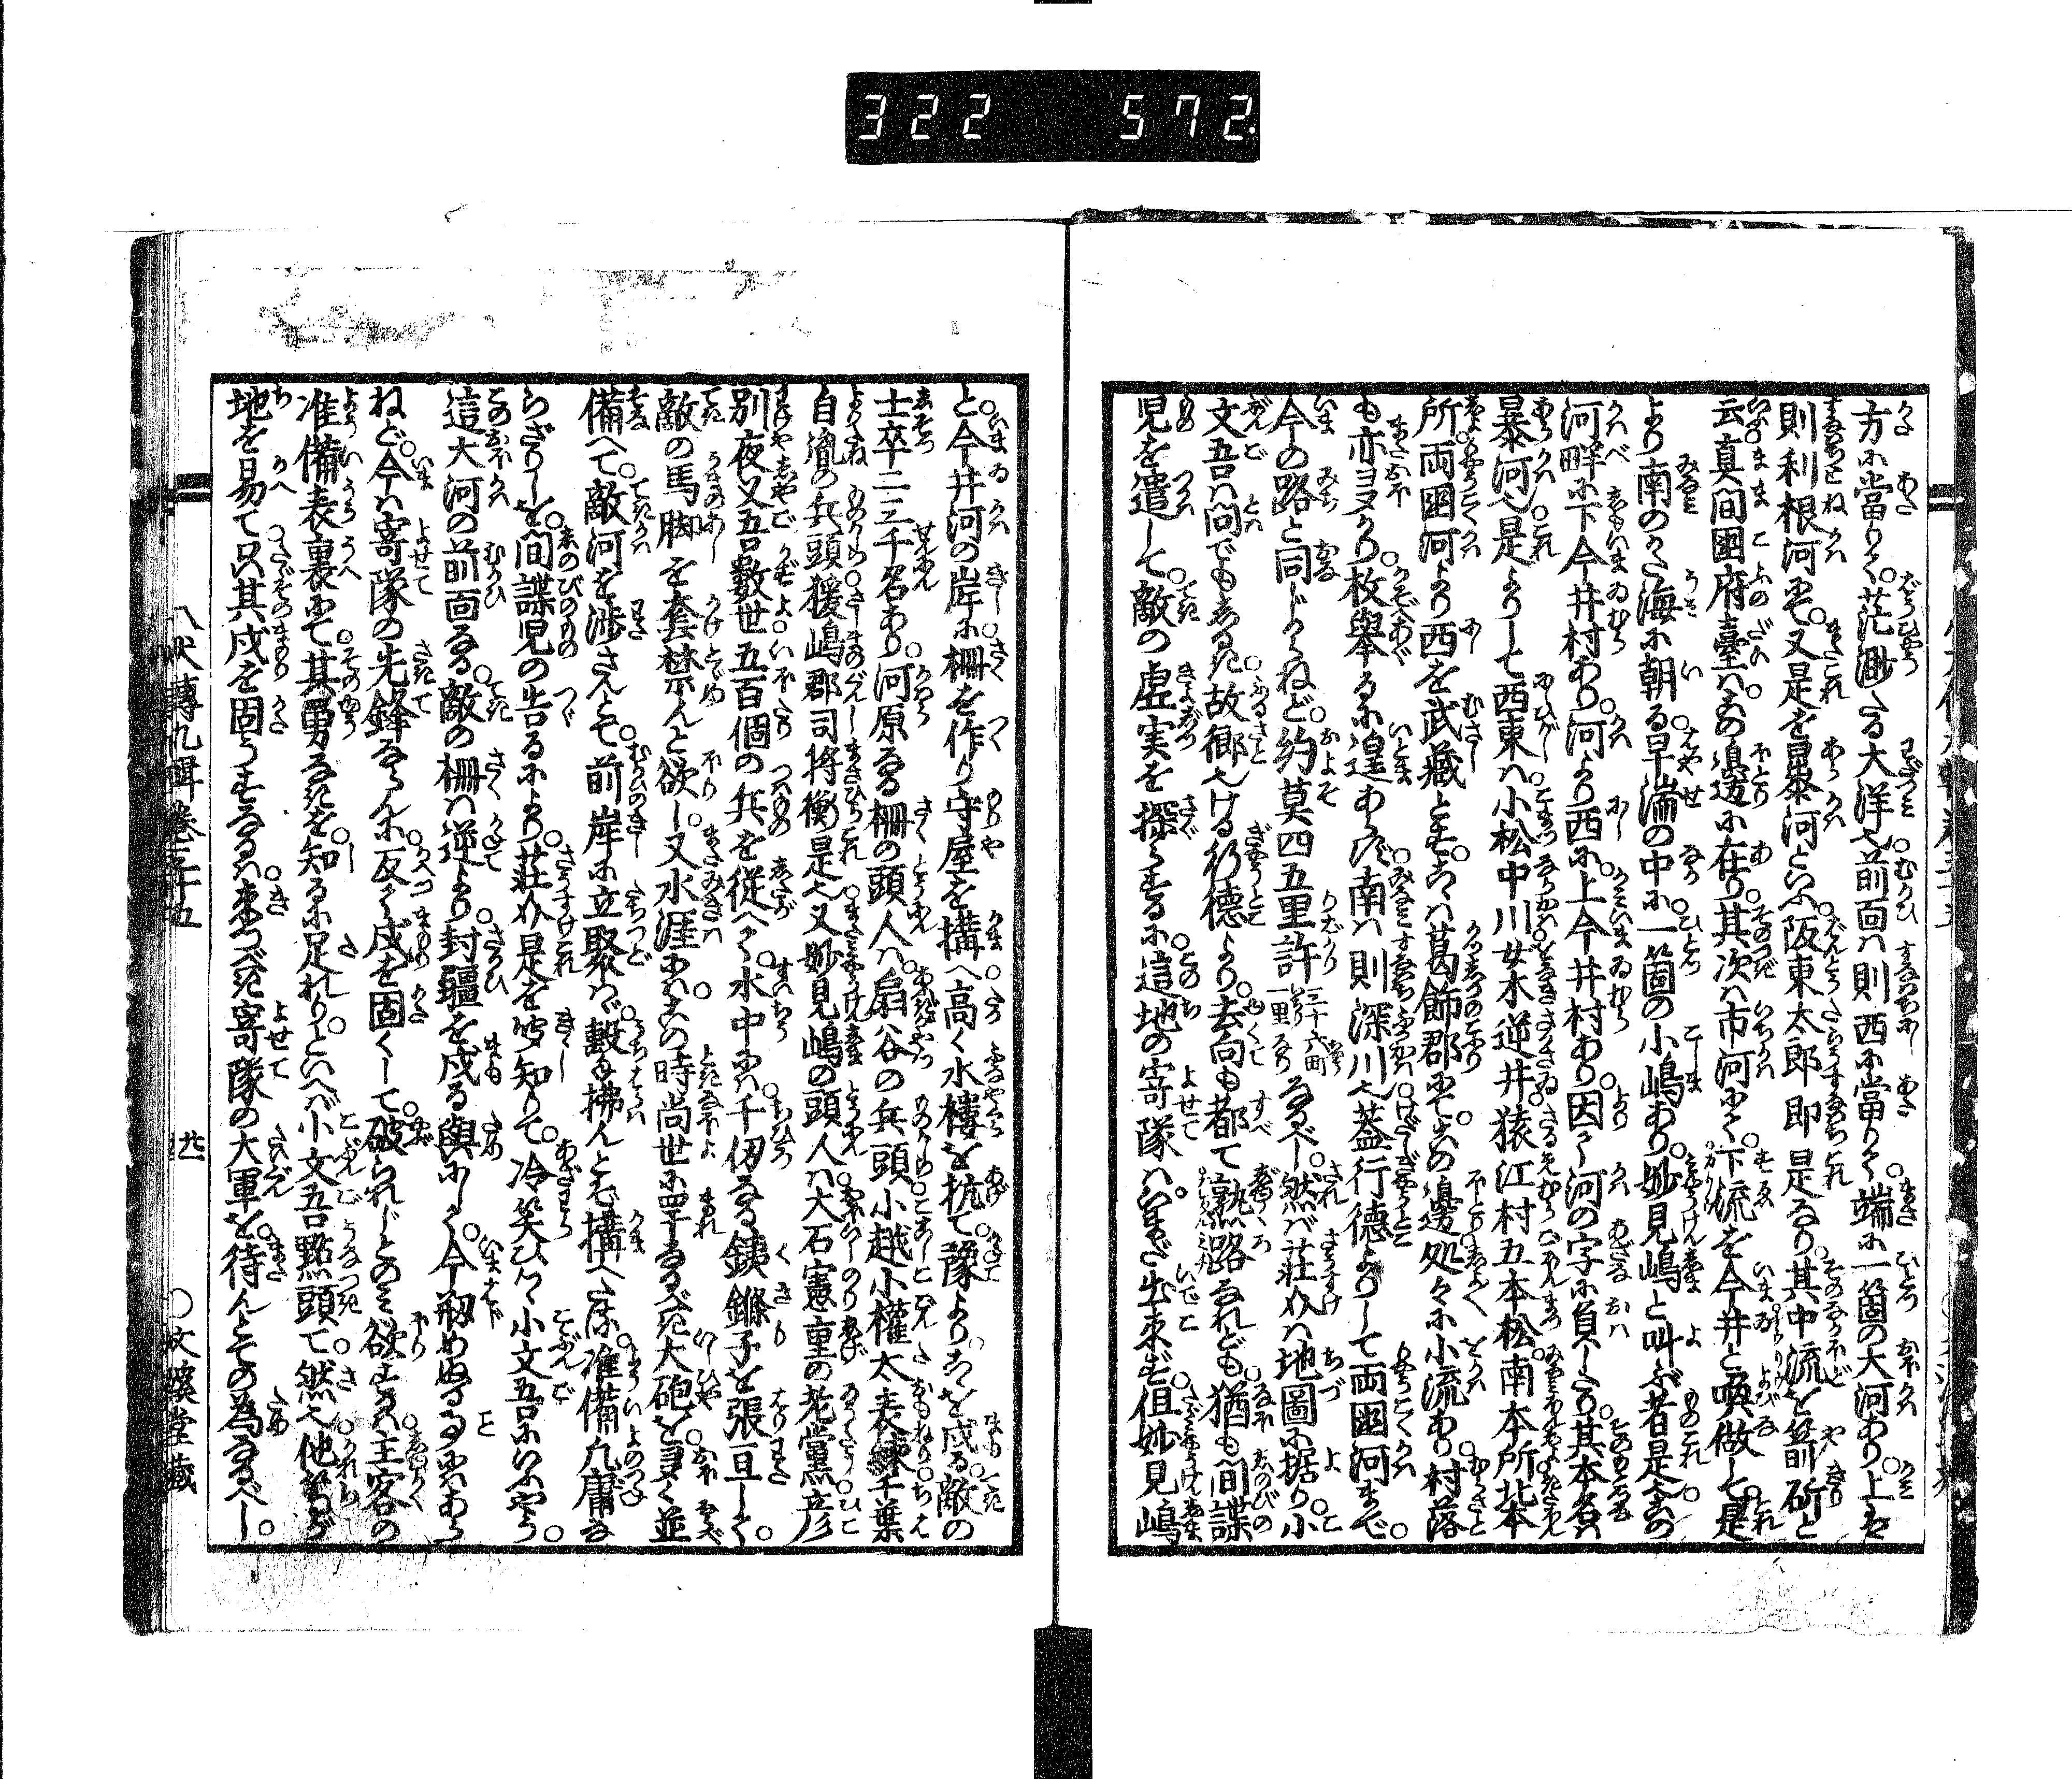 322 572
方に當りて。茫渺たる大洋也。前面は則西に當りて。端に一箇の大河あり。上を
則利根河にて。又是を暴河といふ。阪東太郎即是なり。其中流を箭斫と
云。真間国府臺は。あの邉に在り。其次は市河にて。下流を今井と喚做して。是
より南のかた海に朝る。早湍の中に。一箇の小嶋あり。妙見嶋と叫ぶ者是。この
河畔に下今井村あり。河より西に。上今井村あり。因て河の字に負したる。其本名は
暴河也。是よりして西東は。小松中川女木逆井猿江村五本松。南本所北本
所両國河より西を武藏とす。こは葛飾郡にて。この邉処々に小流あり。村落
も亦ヨタかり。枚舉るに遑あらず。南は則深川也。蓋行德よりして両國河まで。
今の路と同じからねど。約莫四五里許三十六町一里なりなるべし。然ば莊介は地圖に据り。小
文吾は問でもしるき。故郷也ける行德より。去向も都て熟路なれども。猶も間諜
児を遣して。敵の虚実を探らするに。這地の寄隊は。いまだ出来ず。但妙見嶋
と。今井河の岸に柵を作り。守屋を搆へ。高く水樓を抗て。豫よりこを戍る。敵の
士卒二三千名あり。河原なる柵の頭人は。扇谷の兵頭小越小權太表練。千葉
自胤の兵頭。猨嶋郡司将衡是也。又妙見嶋の頭人は。大石憲重の老黨。彦
別夜叉吾數世。五百個の兵を従へて。水中には。千仭なる銕鏈子を張亘して。
敵の馬脚を套禁んと欲し。又水涯には。この時尚世に罕なるべき大砲を。夛く並
備へて。敵河を渉さんとて。前岸に立聚はゞ。𣪘拂んとぞ搆へたる。准備凡庸な
らざりしを。間諜児の告るにより。莊介是を吱知りて。冷笑ひて小文吾にいふやう。
這大河の前面なる。敵の柵は逆より。封疆を戍る與にして。今剏めぬる事にはあら
ねど。今は寄隊の先鋒ならんに。反て戍を固くして。破られじとのみ欲するは。主客の
准備表裏にて。其勇なきを知るに足れり。といへば小文吾點頭て。然也。他等が
地を易て只其戍を固うするは。来つべき寄隊の大軍を。待んとての為なるべし。
八犬傳九輯巻三十五 廿一 ○文溪堂藏